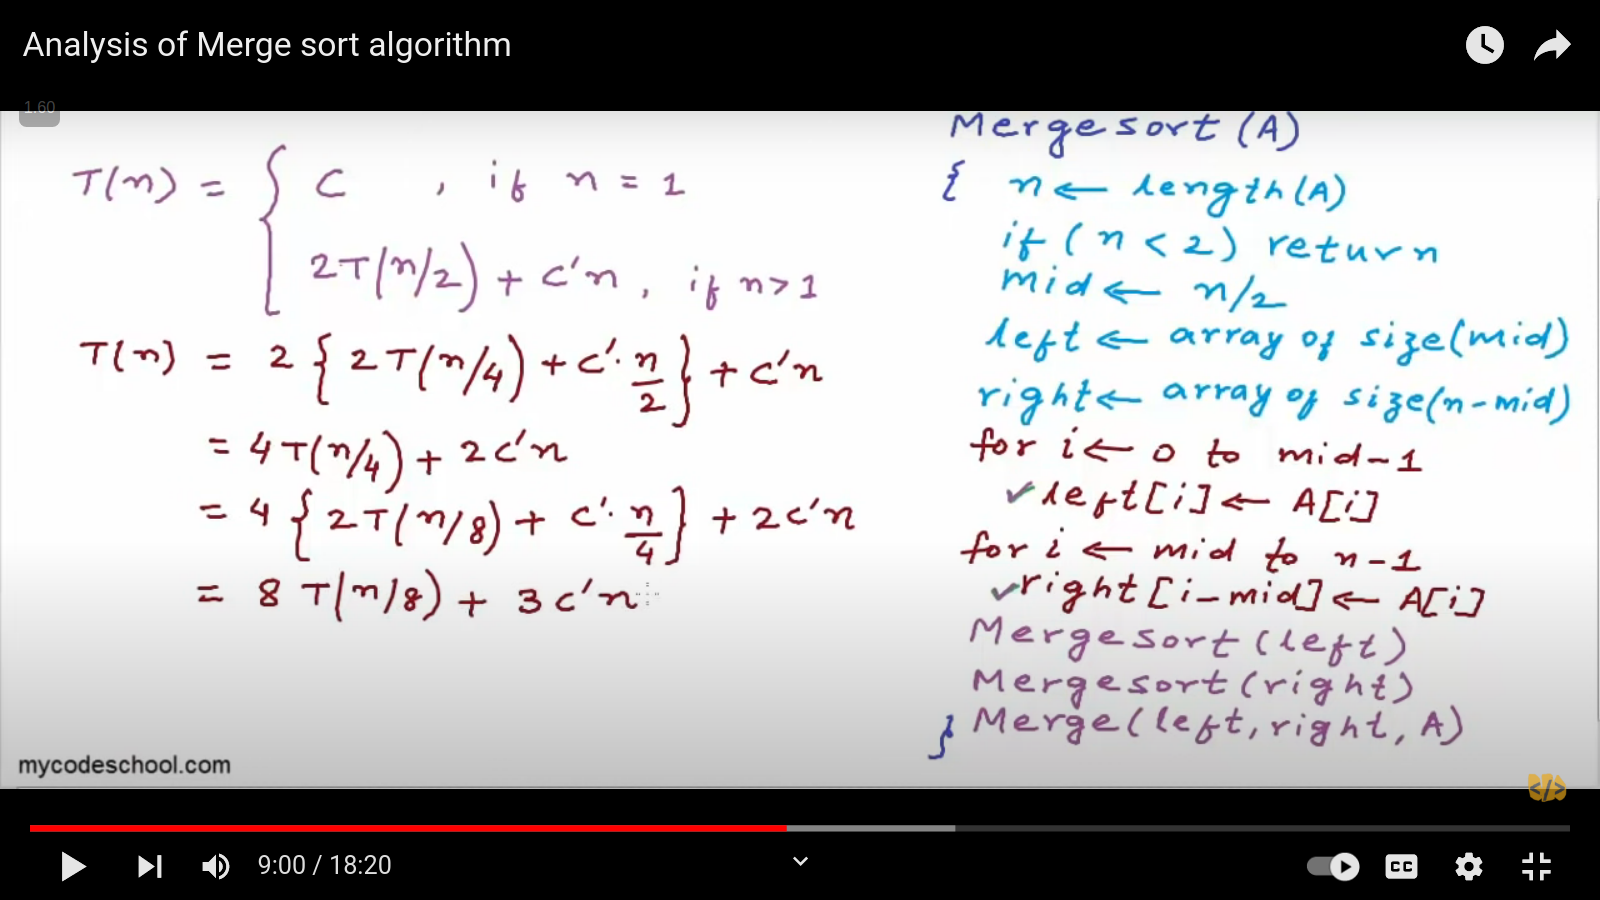 Analysis of Merge sort algorithm
1.60
T(n) = { C , if n = 1
2T(n/2) + c'n , if n>1
T(n) = 2 { 2T(n/4) + c'· n/2 } + c'n
= 4T(n/4) + 2c'n
= 4 { 2T(n/8) + c'· n/4 } + 2c'n
= 8 T(n/8) + 3c'n
Mergesort(A)
{ n ← length(A)
if (n < 2) return
mid ← n/2
left ← array of size(mid)
right ← array of size(n-mid)
for i ← 0 to mid-1
✓ left[i] ← A[i]
for i ← mid to n-1
✓ right[i-mid] ← A[i]
Mergesort(left)
Mergesort(right)
} Merge(left, right, A)
mycodeschool.com
</>
9:00 / 18:20
CC